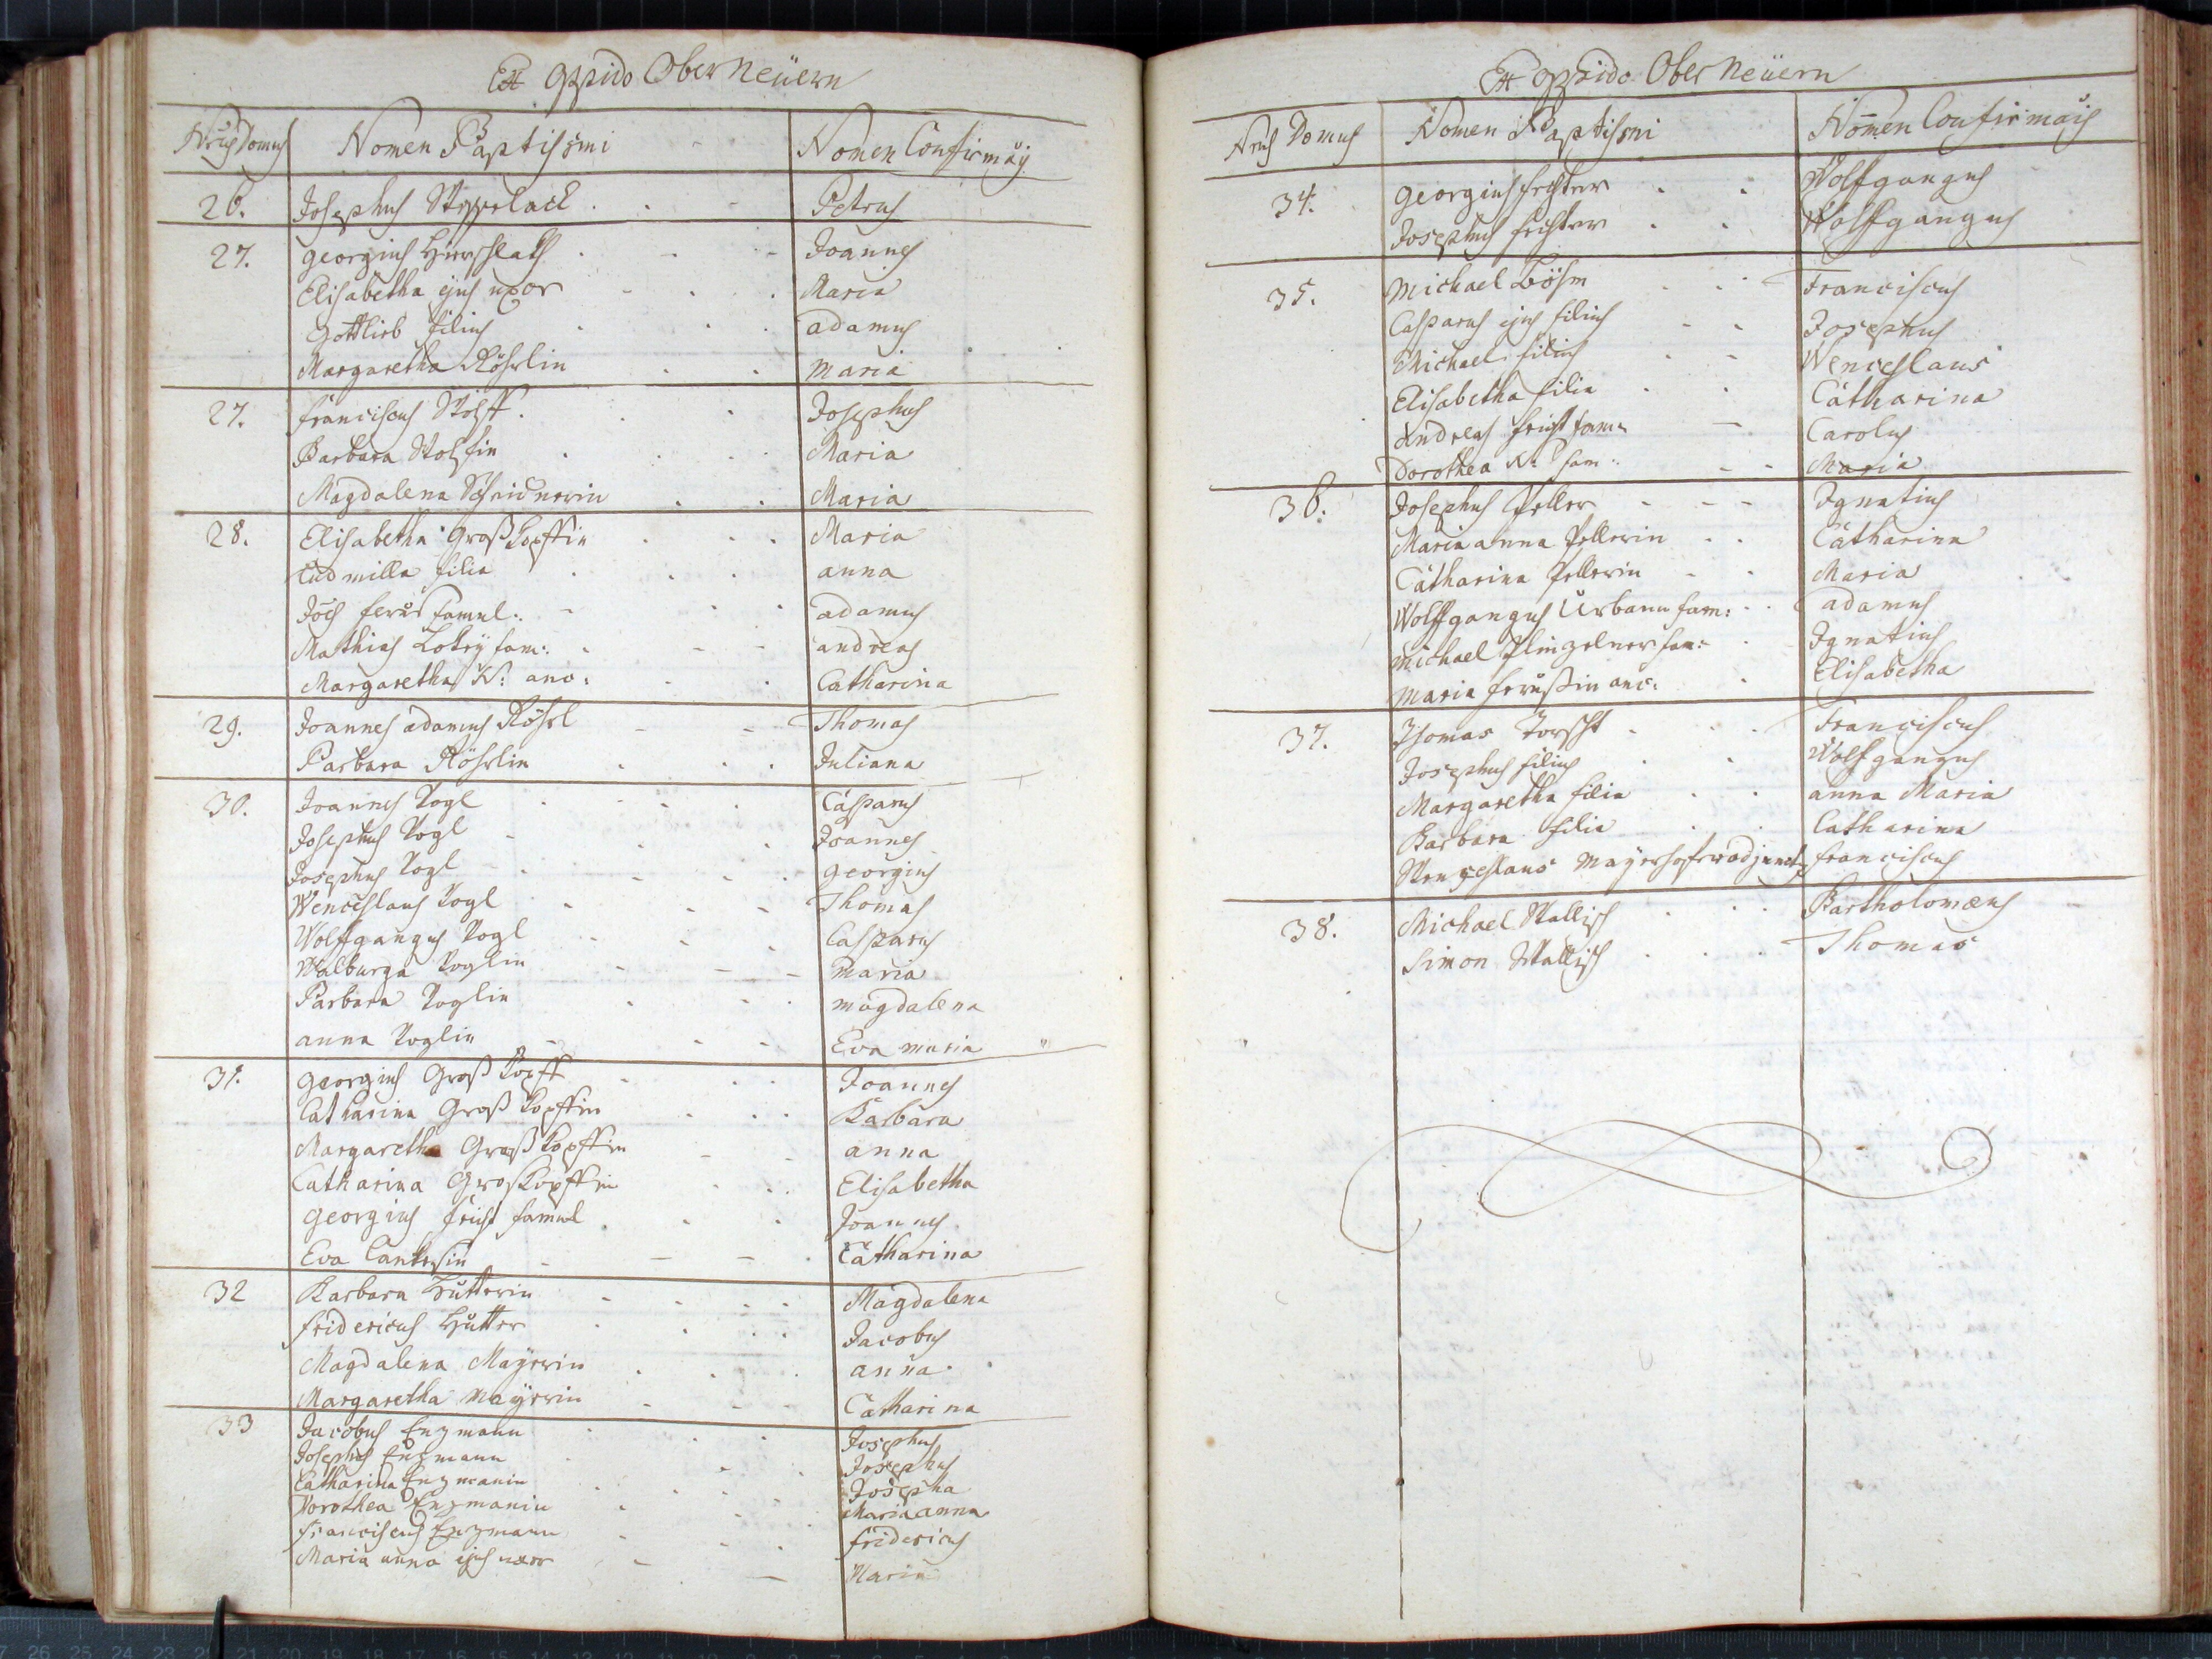 Ex Oppido Oberneüern
Nrus Domus Nomen Baptismi Nomen Confirmãõis
26. Josephus Petrus
27. Georgius Joannes
Elisabetha ejus uxor Maria
Gottlieb filius Adamus
Margaretha Röhrlin Maria
27. Franciscus Stolff Josephus
Barbara Stolfin Maria
Magdalena Schreinerin Maria
28. Elisabetha Großkopffin Maria
Ludmilla filia Anna
Joës famul: Adamus
Mathias fam: Andreas
Margaretha N: anc: Catharina
29. Joannes Adamus Röhrl Thomas
Barbara Röhrlin Juliana
30. Joannes Vogl Casparus
Josephus Vogl Joannes
Josephus Vogl Georgius
Wenceslaus Vogl Thomas
Wolffgangus Vogl Casparus
Walburga Voglin Maria
Barbara Voglin Magdalena
Anna Voglin Eva Maria
31. Georgius Großkopff Joannes
Catharina Großkopffin Barbara
Margaretha Großkopffin Anna
Catharina Groskopffin Elisabetha
Georgius famul Joannes
Eva Catharina
32 Barbara Hutterin Magdalena
Fridericus Hutter Jacobus
Magdalena Mayrin Anna
Margaretha Mayrin Catharina
33 Jacobus Enzmann Josephus
Josephus Enzmann Josephus
Catharina Enzmanin Josepha
Dorothea Enzmanin Maria Anna
Franciscus Enzmann Fridericus
Maria Anna ejus uxor Maria
Ex Oppido Oberneüern
Nrus Domus Nomen Baptismi Nomen Confirmãõis
34. Georgius Wolffgangus
Josephus Wolffgangus
35. Michael Böhm Franciscus
Casparus ejus filius Josephus
Michael filius Wenceslaus
Elisabetha filia Catharina
Andreas fam: Carolus
Dorothea N: fam: Maria
36. Josephus Peller Ignatius
Maria Anna Pellerin Catharina
Catharina Pellerin Maria
Wolffgangus Urbann fam: Adamus
Michael fam: Ignatius
Maria anc: Elisabetha
37. Thomas Franciscus
Josephus filius Wolfgangus
Margaretha filia Anna Maria
Barbara filia Catharina
Wenceslaus Mayrhofer Franciscus
38. Michael Wallisch Bartholomæus
Simon Wallisch Thomas